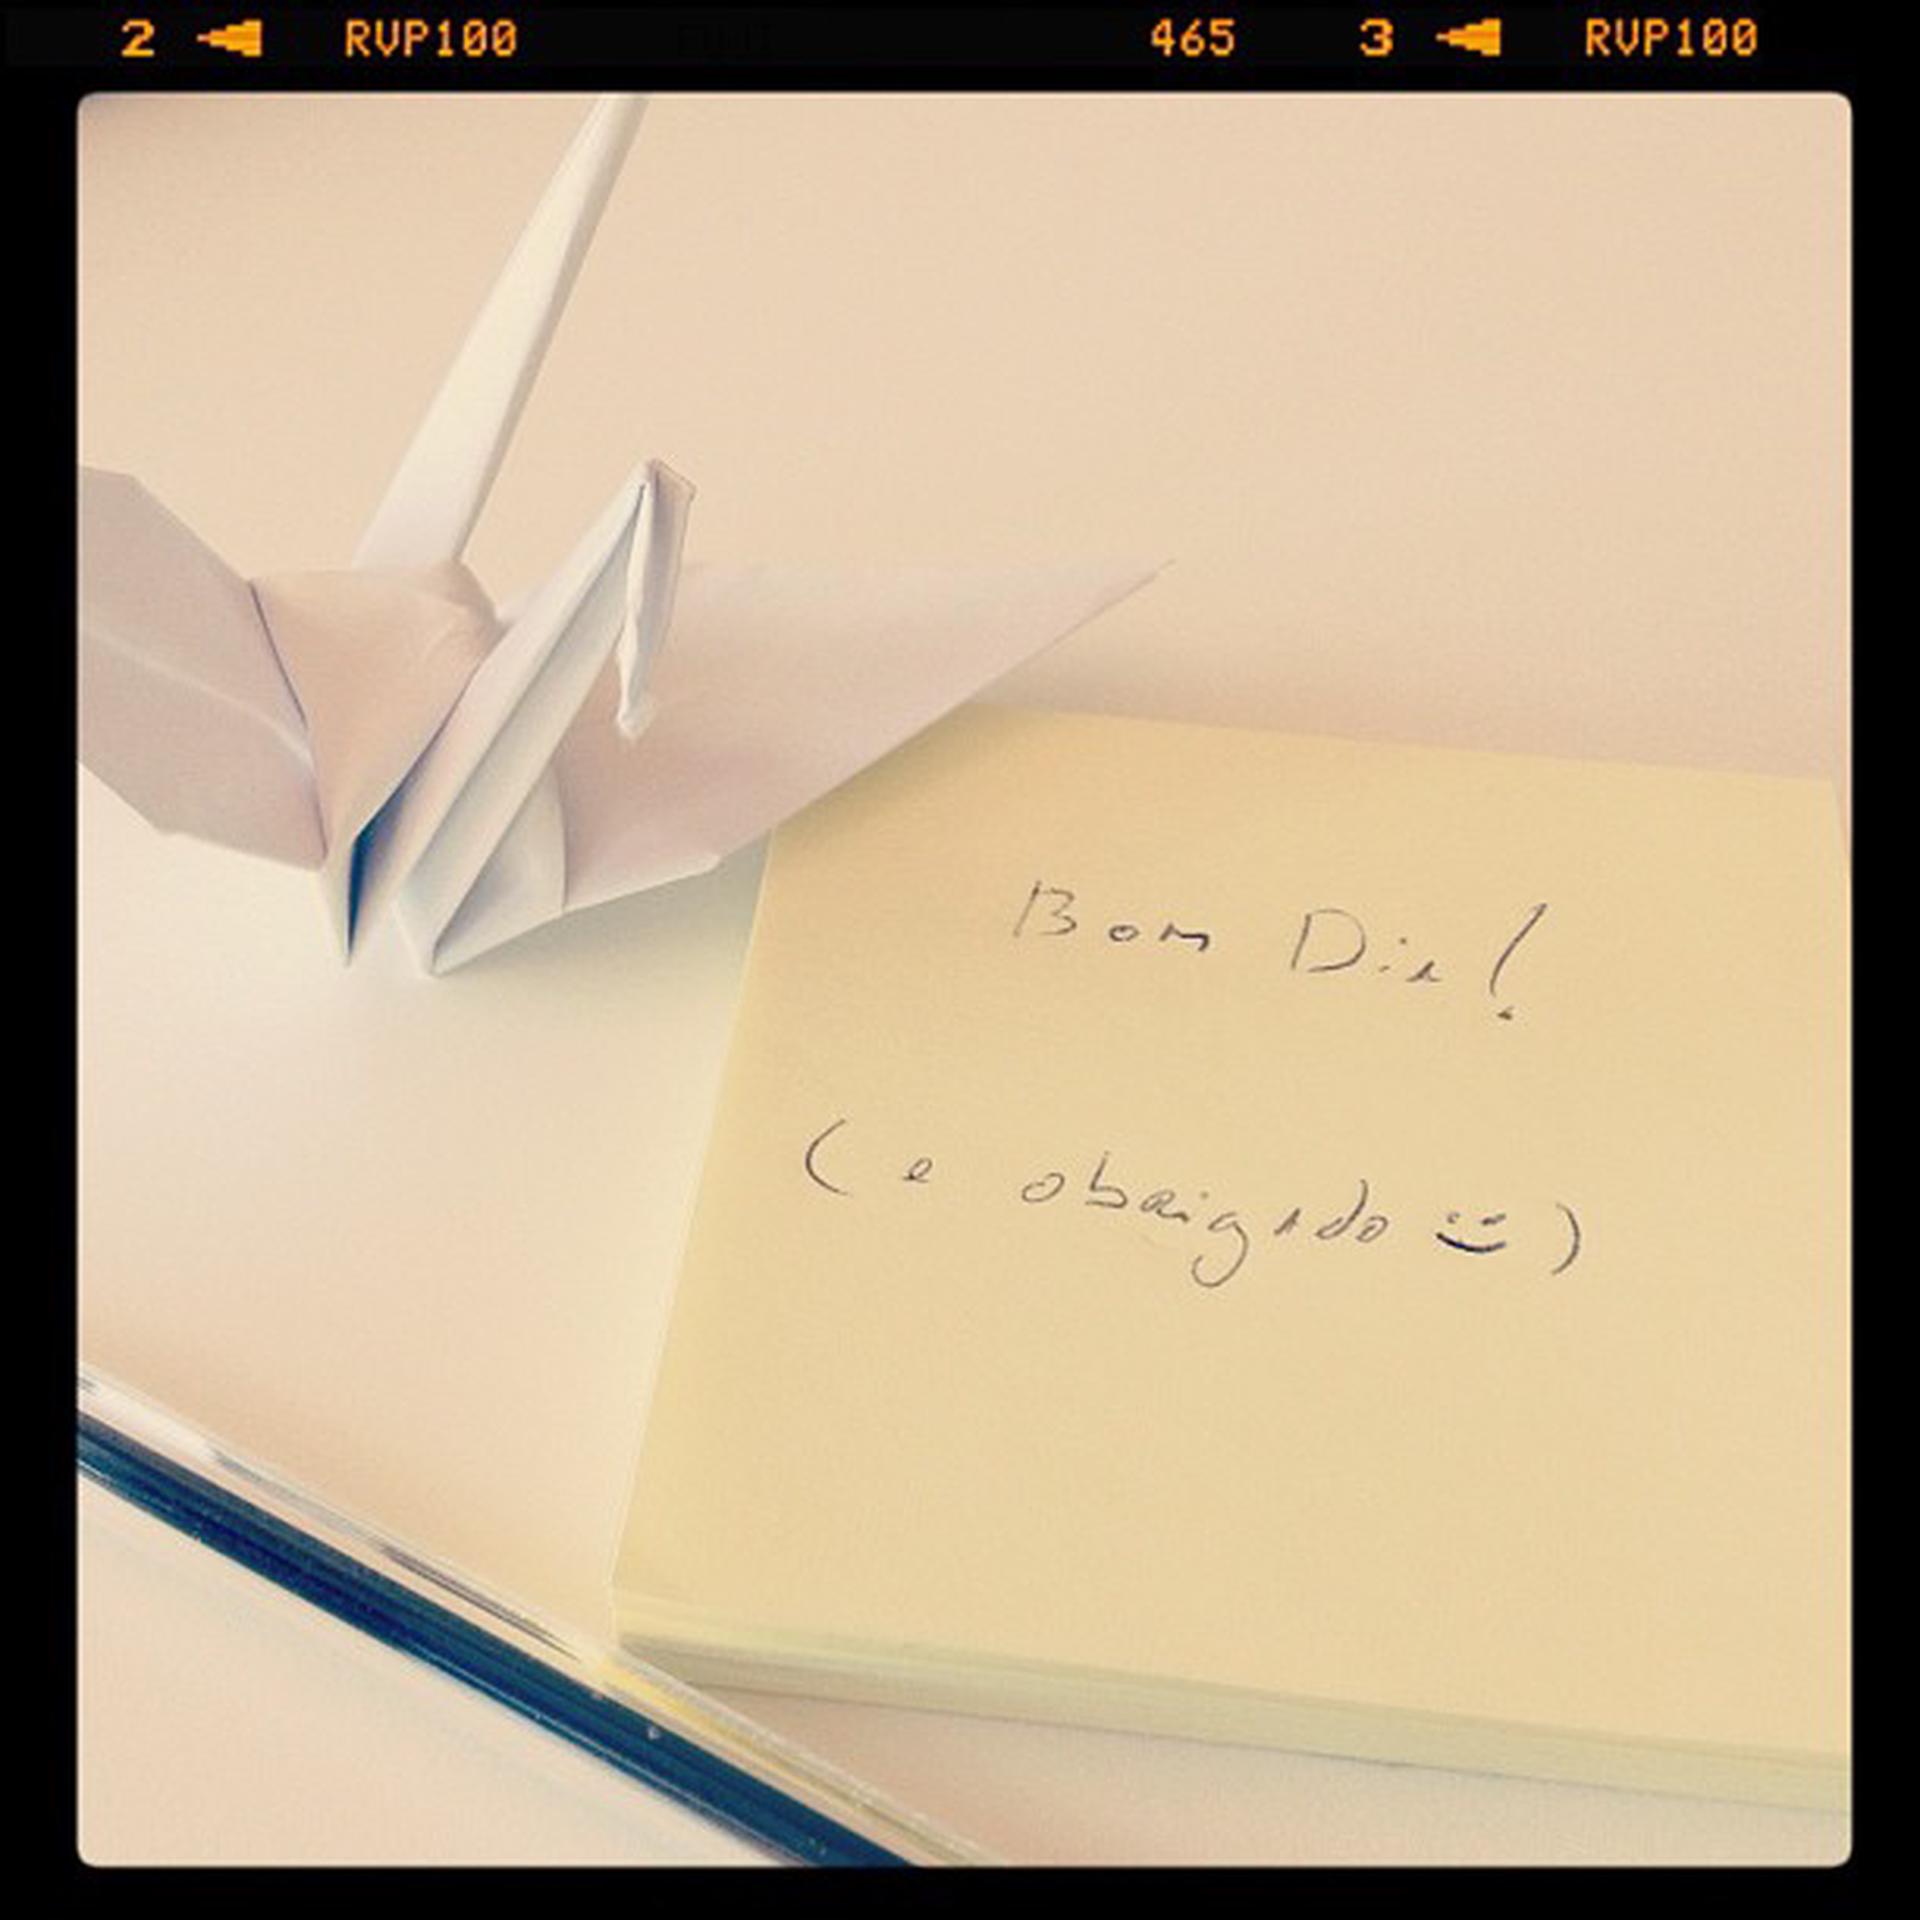 2 RVP100 465 3 RVP100
Bom Dia!
(e obrigado :))